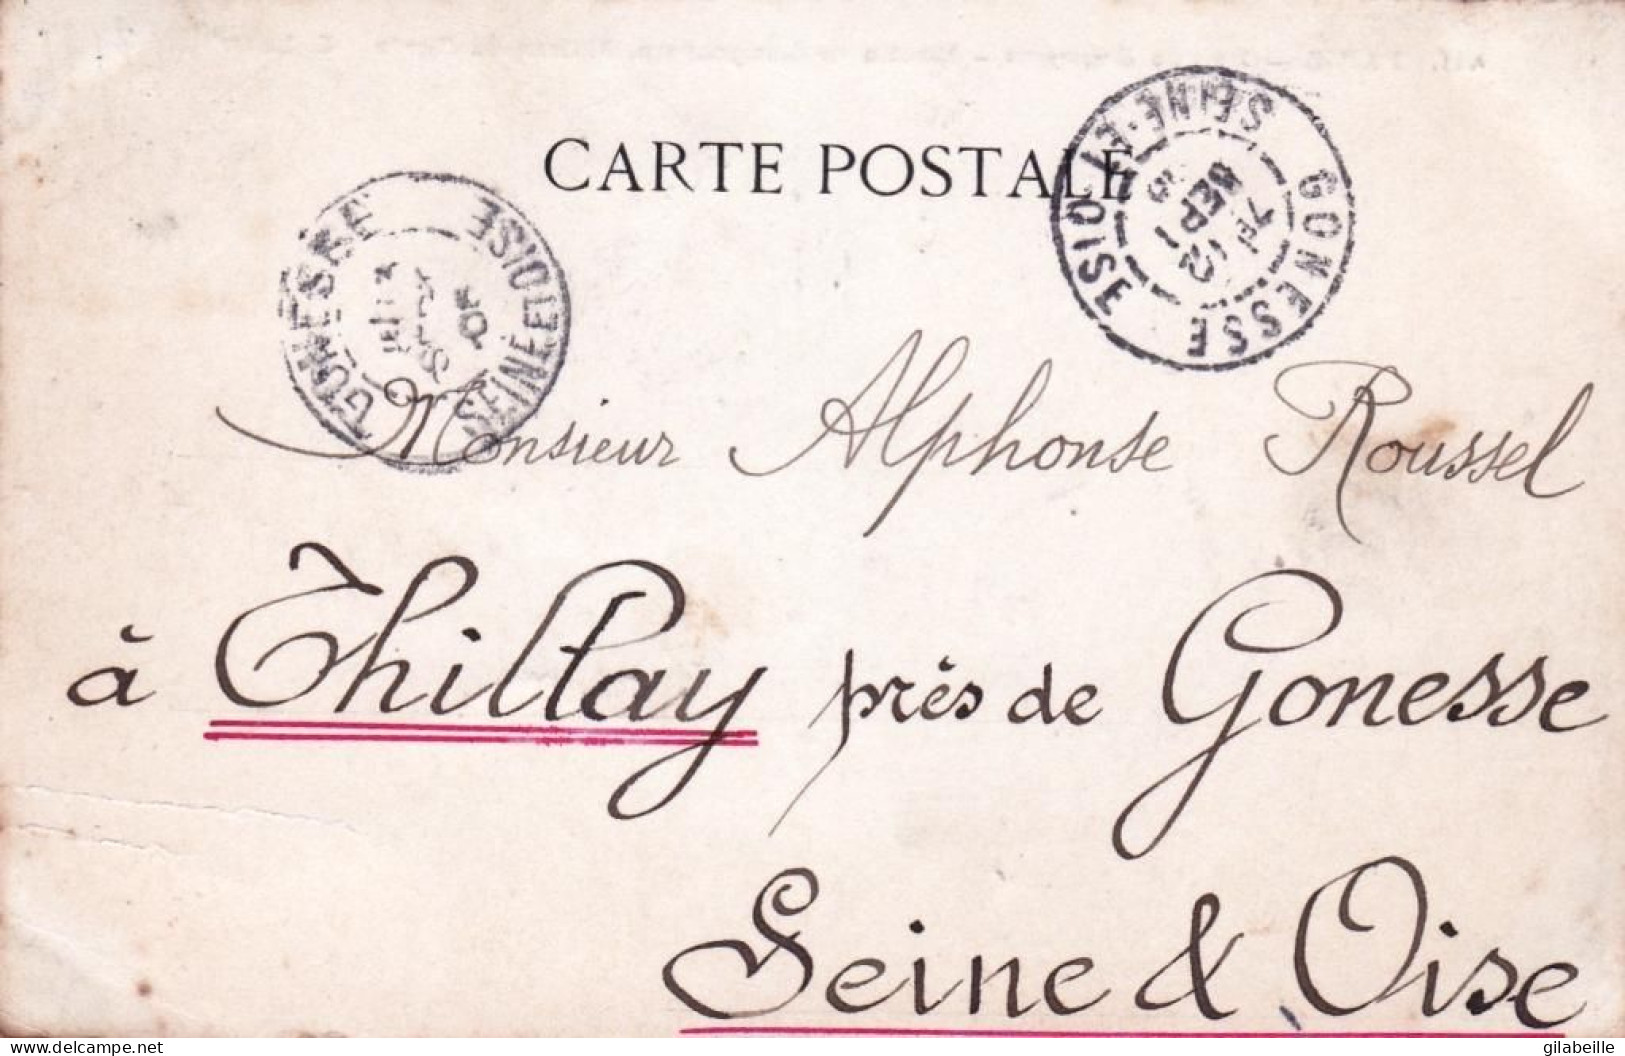 CARTE POSTALE
GONESSE
SEINE-ET-OISE
7E
SEPT
GONESSE
SEINE ET OISE
Monsieur Alphonse Roussel
à Thillay près de Gonesse
Seine & Oise
delcampe.net
gilabeille